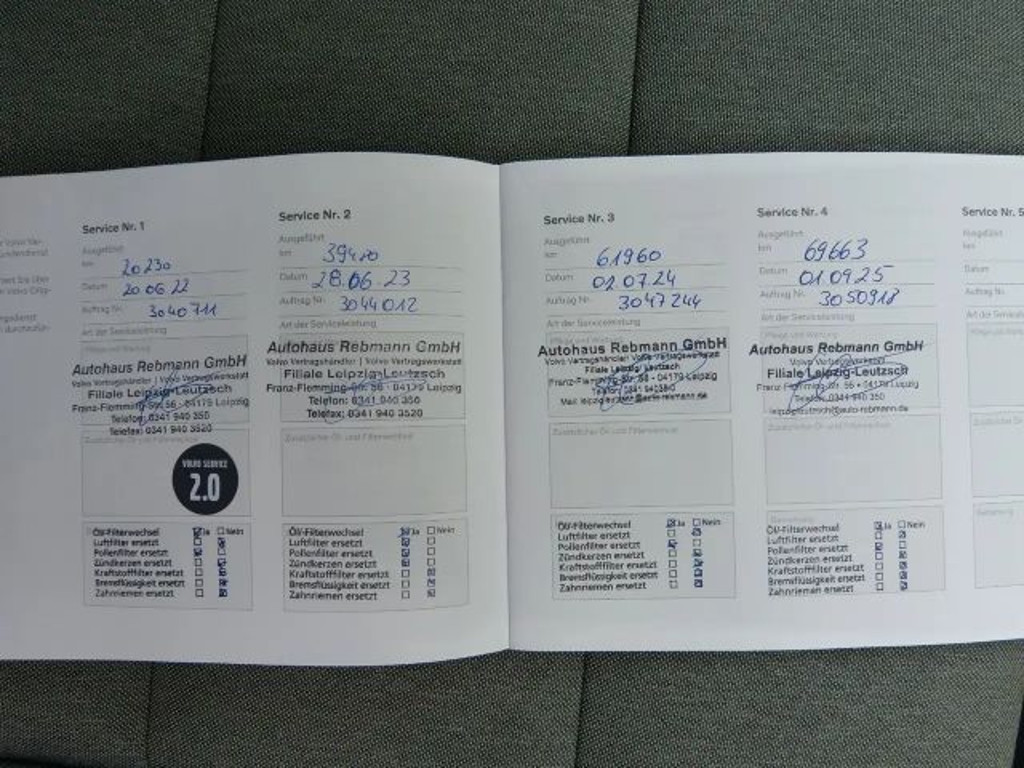 Service Nr. 1
Ausgeführt
km 20230
Datum 20 06 22
Auftrag Nr. 3040711
Art der Serviceleistung
Autohaus Rebmann GmbH
Volvo Vertragshändler | Volvo Vertragswerkstatt
Filiale Leipzig-Leutzsch
Franz-Flemming-Str. 56 - 04179 Leipzig
Telefon: 0341 940 350
Telefax: 0341 940 3520
Zusätzlicher Öl- und Filterwechsel
VOLVO SERVICE
2.0
Öl/-Filterwechsel Ja Nein
Luftfilter ersetzt
Pollenfilter ersetzt
Zündkerzen ersetzt
Kraftstofffilter ersetzt
Bremsflüssigkeit ersetzt
Zahnriemen ersetzt
Service Nr. 2
Ausgeführt
km 39420
Datum 28.06.23
Auftrag Nr. 3044012
Art der Serviceleistung
Autohaus Rebmann GmbH
Volvo Vertragshändler | Volvo Vertragswerkstatt
Filiale Leipzig-Leutzsch
Franz-Flemming-Str. 56 - 04179 Leipzig
Telefon: 0341 940 350
Telefax: 0341 940 3520
Zusätzlicher Öl- und Filterwechsel
Öl/-Filterwechsel Ja Nein
Luftfilter ersetzt
Pollenfilter ersetzt
Zündkerzen ersetzt
Kraftstofffilter ersetzt
Bremsflüssigkeit ersetzt
Zahnriemen ersetzt
Service Nr. 3
Ausgeführt
km 61960
Datum 02.07.24
Auftrag Nr. 3047244
Art der Serviceleistung
Autohaus Rebmann GmbH
Volvo Vertragshändler Volvo Vertragswerkstatt
Filiale Leipzig Leutzsch
Franz-Flemming-Str. 56 - 04179 Leipzig
Zusätzlicher Öl- und Filterwechsel
Öl/-Filterwechsel Ja Nein
Luftfilter ersetzt
Pollenfilter ersetzt
Zündkerzen ersetzt
Kraftstofffilter ersetzt
Bremsflüssigkeit ersetzt
Zahnriemen ersetzt
Service Nr. 4
Ausgeführt
km 69663
Datum 01.09.25
Auftrag Nr. 3050918
Art der Serviceleistung
Autohaus Rebmann GmbH
Volvo Vertragswerkstatt
Filiale Leipzig-Leutzsch
Franz-Flemming-Str. 56 - 04179 Leipzig
Telefon: 0341 940 350
Zusätzlicher Öl- und Filterwechsel
Öl/-Filterwechsel Ja Nein
Luftfilter ersetzt
Pollenfilter ersetzt
Zündkerzen ersetzt
Kraftstofffilter ersetzt
Bremsflüssigkeit ersetzt
Zahnriemen ersetzt
Service Nr. 5
Ausgeführt
km
Datum
Auftrag Nr.